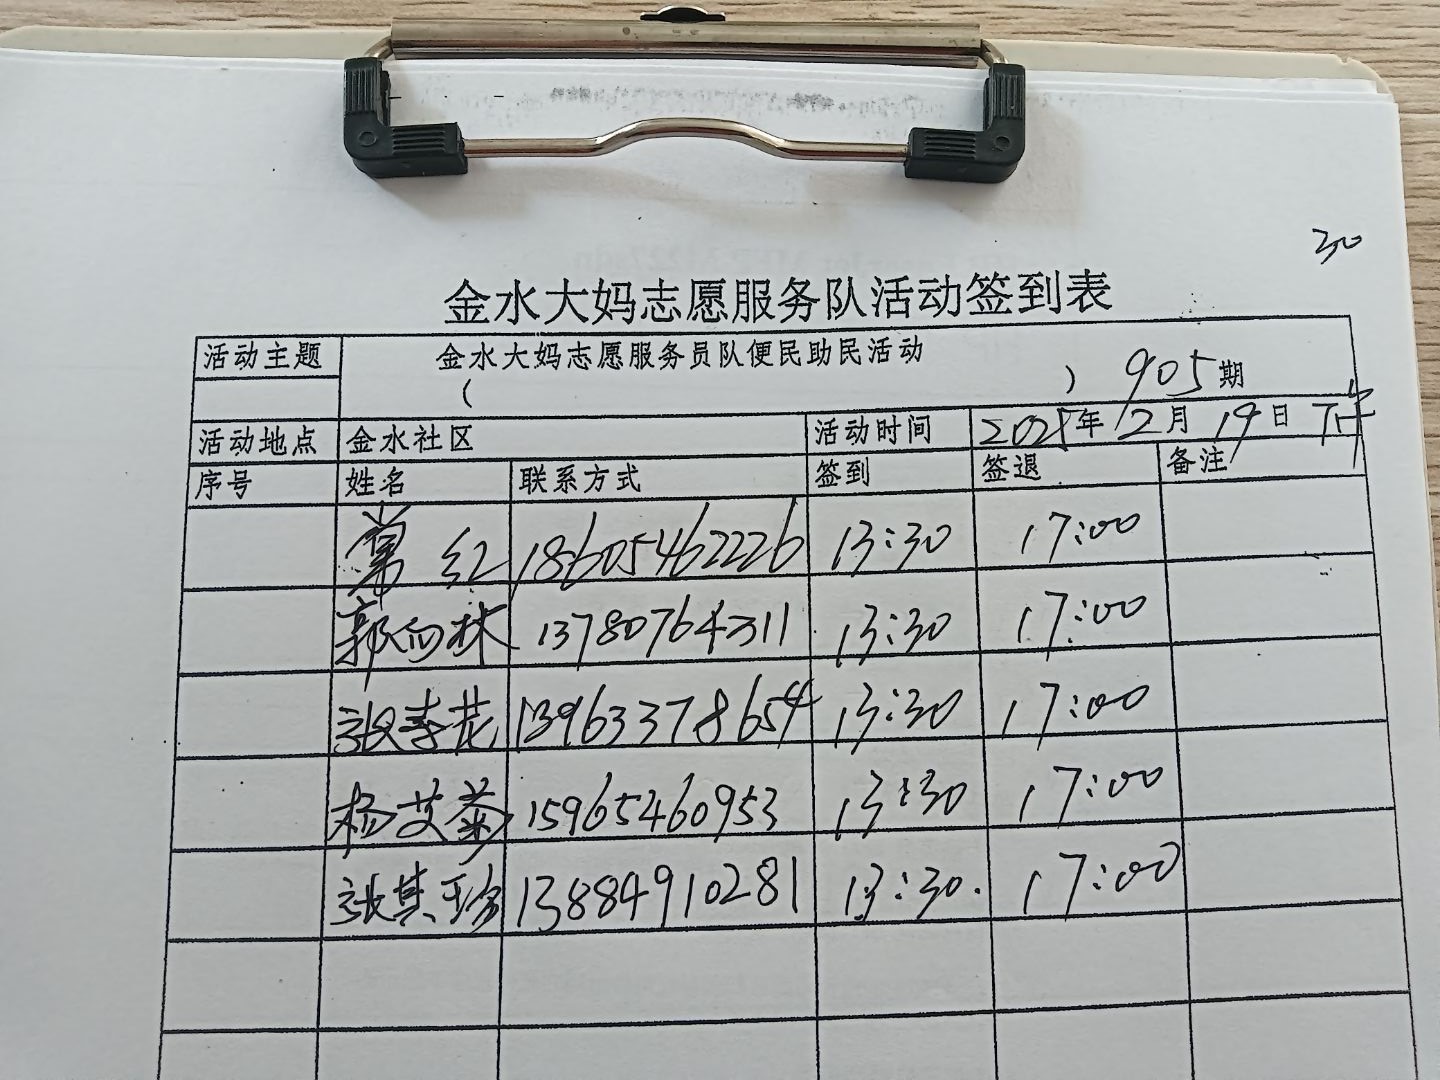 30
金水大妈志愿服务队活动签到表
活动主题 金水大妈志愿服务员队便民助民活动
( ) 905期
活动地点 金水社区 活动时间 2025年 2月 19日 下午
序号 姓名 联系方式 签到 签退 备注
常红 18605462226 13:30 17:00
郭向林 13780764311 13:30 17:00
张春花 13963378654 13:30 17:00
杨艾菊 15965460953 13:30 17:00
张其珍 13884910281 13:30. 17:00